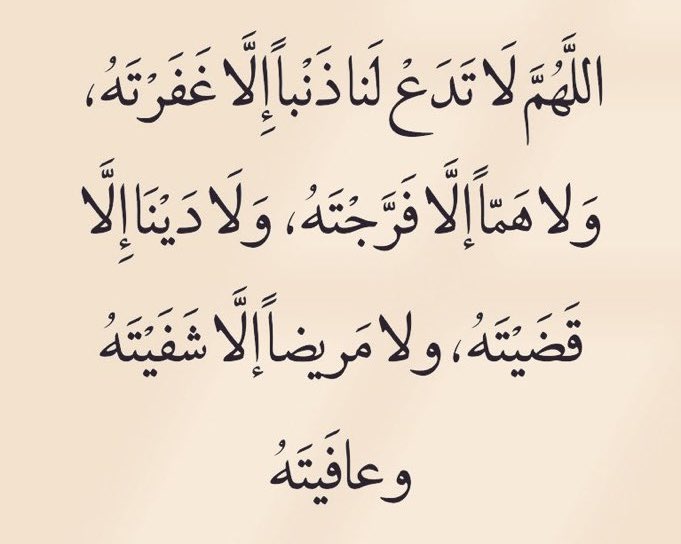 اللَّهُمَّ لَا تَدَعْ لَنا ذَنْباً إِلَّا غَفَرْتَهُ،
وَلا هَمّاً إلَّا فَرَّجْتَهُ، وَلَا دَيْنَا إِلَّا
قَضَيْتَهُ، ولا مَريضاً إلَّا شَفَيْتَهُ
وعافَيتَهُ